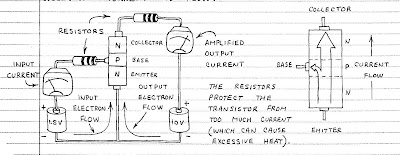 RESISTORS
INPUT
CURRENT
N
P
N
COLLECTOR
BASE
EMITTER
AMPLIFIED
OUTPUT
CURRENT
INPUT
ELECTRON
FLOW
OUTPUT
ELECTRON
FLOW
1.5V
10V
+
+
THE RESISTORS
PROTECT THE
TRANSISTOR FROM
TOO MUCH CURRENT
(WHICH CAN CAUSE
EXCESSIVE HEAT).
COLLECTOR
BASE
N
P
N
CURRENT
FLOW
EMITTER